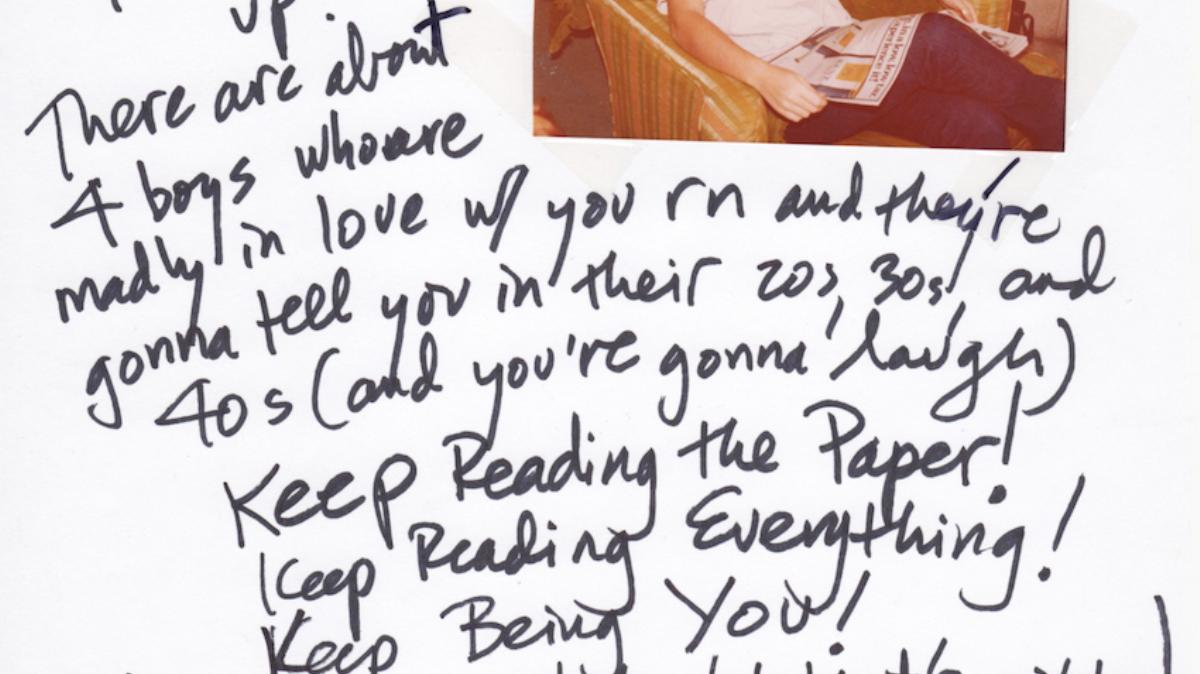 up.
There are about
4 boys who are
madly in love w/ you rn and they're
gonna tell you in their 20s, 30s, and
40s (and you're gonna laugh)
Keep Reading the Paper!
Keep Reading Everything!
Keep Being You!